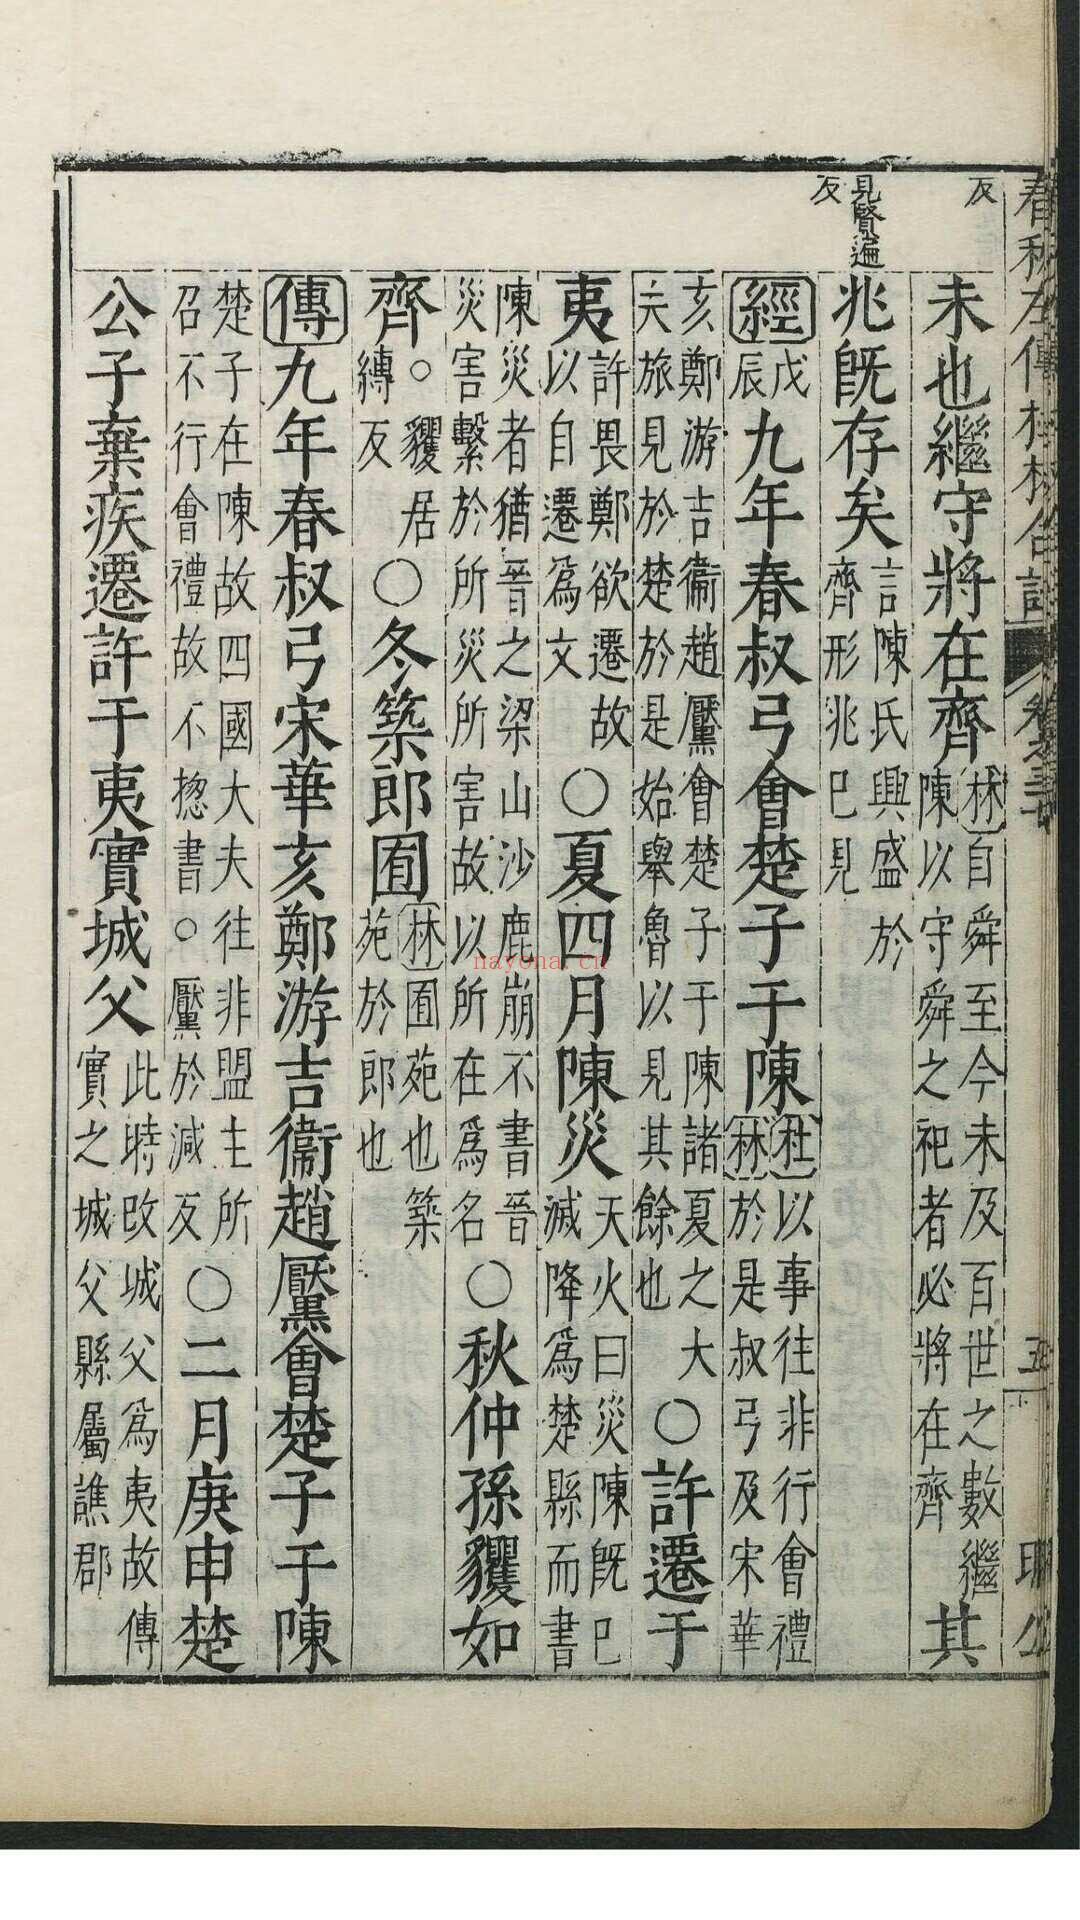 春秋左傳杜林合註 卷之三 五 昭公
反
未也繼守將在齊林自舜至今未及百世之數繼陳以守舜之祀者必將在齊其
見賢遍
反
兆旣存矣言陳氏興盛於齊形兆已見
經戊辰九年春叔弓會楚子于陳杜以事往非行會禮林於是叔弓及宋華
亥鄭游吉衞趙黶會楚子于陳諸夏之大夫旅見於楚於是始舉魯以見其餘也○許遷于
夷許畏鄭欲遷故以自遷爲文○夏四月陳災天火曰災陳旣已滅降爲楚縣而書
陳災者猶晉之梁山沙鹿崩不書晉災害繫於所災所害故以所在爲名○秋仲孫貜如
齊○貜居縛反○冬築郎囿林囿苑也築苑於郎也
傳九年春叔弓宋華亥鄭游吉衞趙黶會楚子于陳
楚子在陳故四國大夫往非盟主所召不行會禮故不揔書○黶於減反○二月庚申楚
公子棄疾遷許于夷實城父此時改城父爲夷故傳實之城父縣屬譙郡
nayona.cn